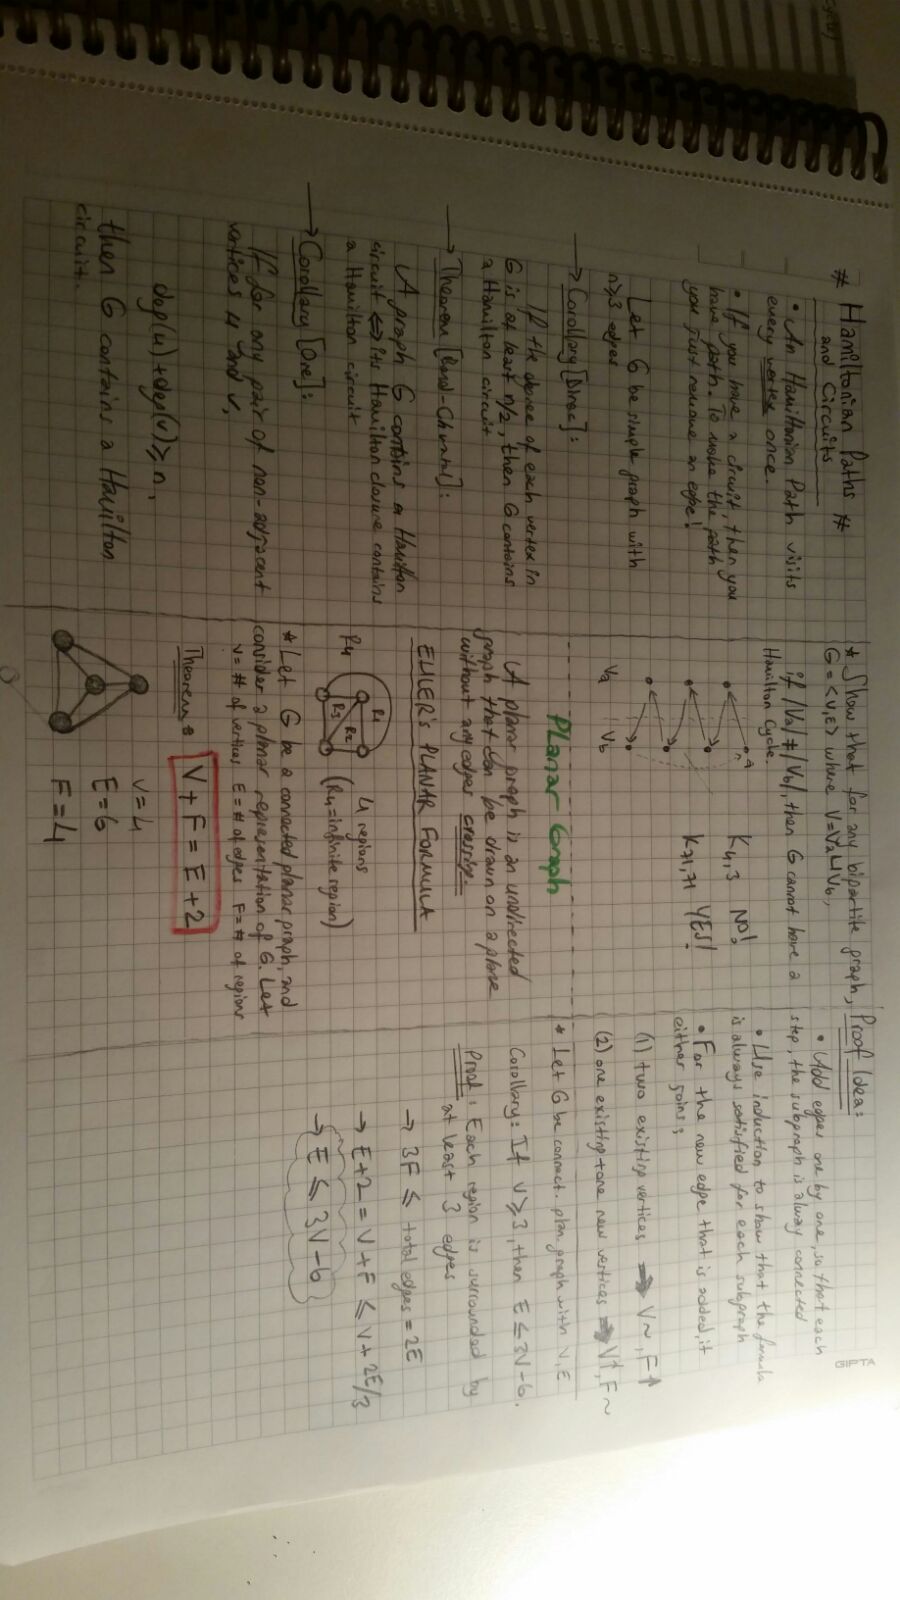 # Hamiltonian Paths #
and Circuits
• An Hamiltonian Path visits
every vertex once.
• If you have a circuit, then you
have path. To make the path
you just remove an edge!
Let G be simple graph with
n≥3 edges
→ Corollary [Dirac]:
If the degree of each vertex in
G is at least n/2, then G contains
a Hamilton circuit
→ Theorem [Bond-Chvatal]:
A graph G contains a Hamilton
circuit ⇔ its Hamilton closure contains
a Hamilton circuit
→ Corollary [Ore]:
If for any pair of non-adjacent
vertices u and v,
deg(u)+deg(v)≥n,
then G contains a Hamilton
circuit.
* Show that for any bipartite graph,
G=<V,E> where V=Va⊔Vb,
if |Va|≠|Vb|, then G cannot have a
Hamilton Cycle.
K4,3 NO!
K71,71 YES!
Va Vb
PLanar Graph
A planar graph is an undirected
graph that can be drawn on a plane
without any edges crossing.
EULER's PLANAR FORMULA
R1
R2
R3
R4
4 regions
(R4=infinite region)
* Let G be a connected planar graph, and
consider a planar representation of G. Let
V= # of vertices E=# of edges F=# of regions
Theorem: V+F=E+2
V=4
E=6
F=4
Proof Idea:
• Add edges one by one, so that each
step, the subgraph is alway connected
• Use induction to show that the formula
is always satisfied for each subgraph
• For the new edge that is added, it
either joins;
(1) two existing vertices → V~, F↑
(2) one existing+one new vertices → V↑, F~
* Let G be connect. plan. graph with V, E
Corollary: If V≥3, then E≤3V-6.
Proof: Each region is surrounded by
at least 3 edges
→ 3F ≤ total edges = 2E
→ E+2 = V+F ≤ V+2E/3
→ E ≤ 3V-6
GIPTA